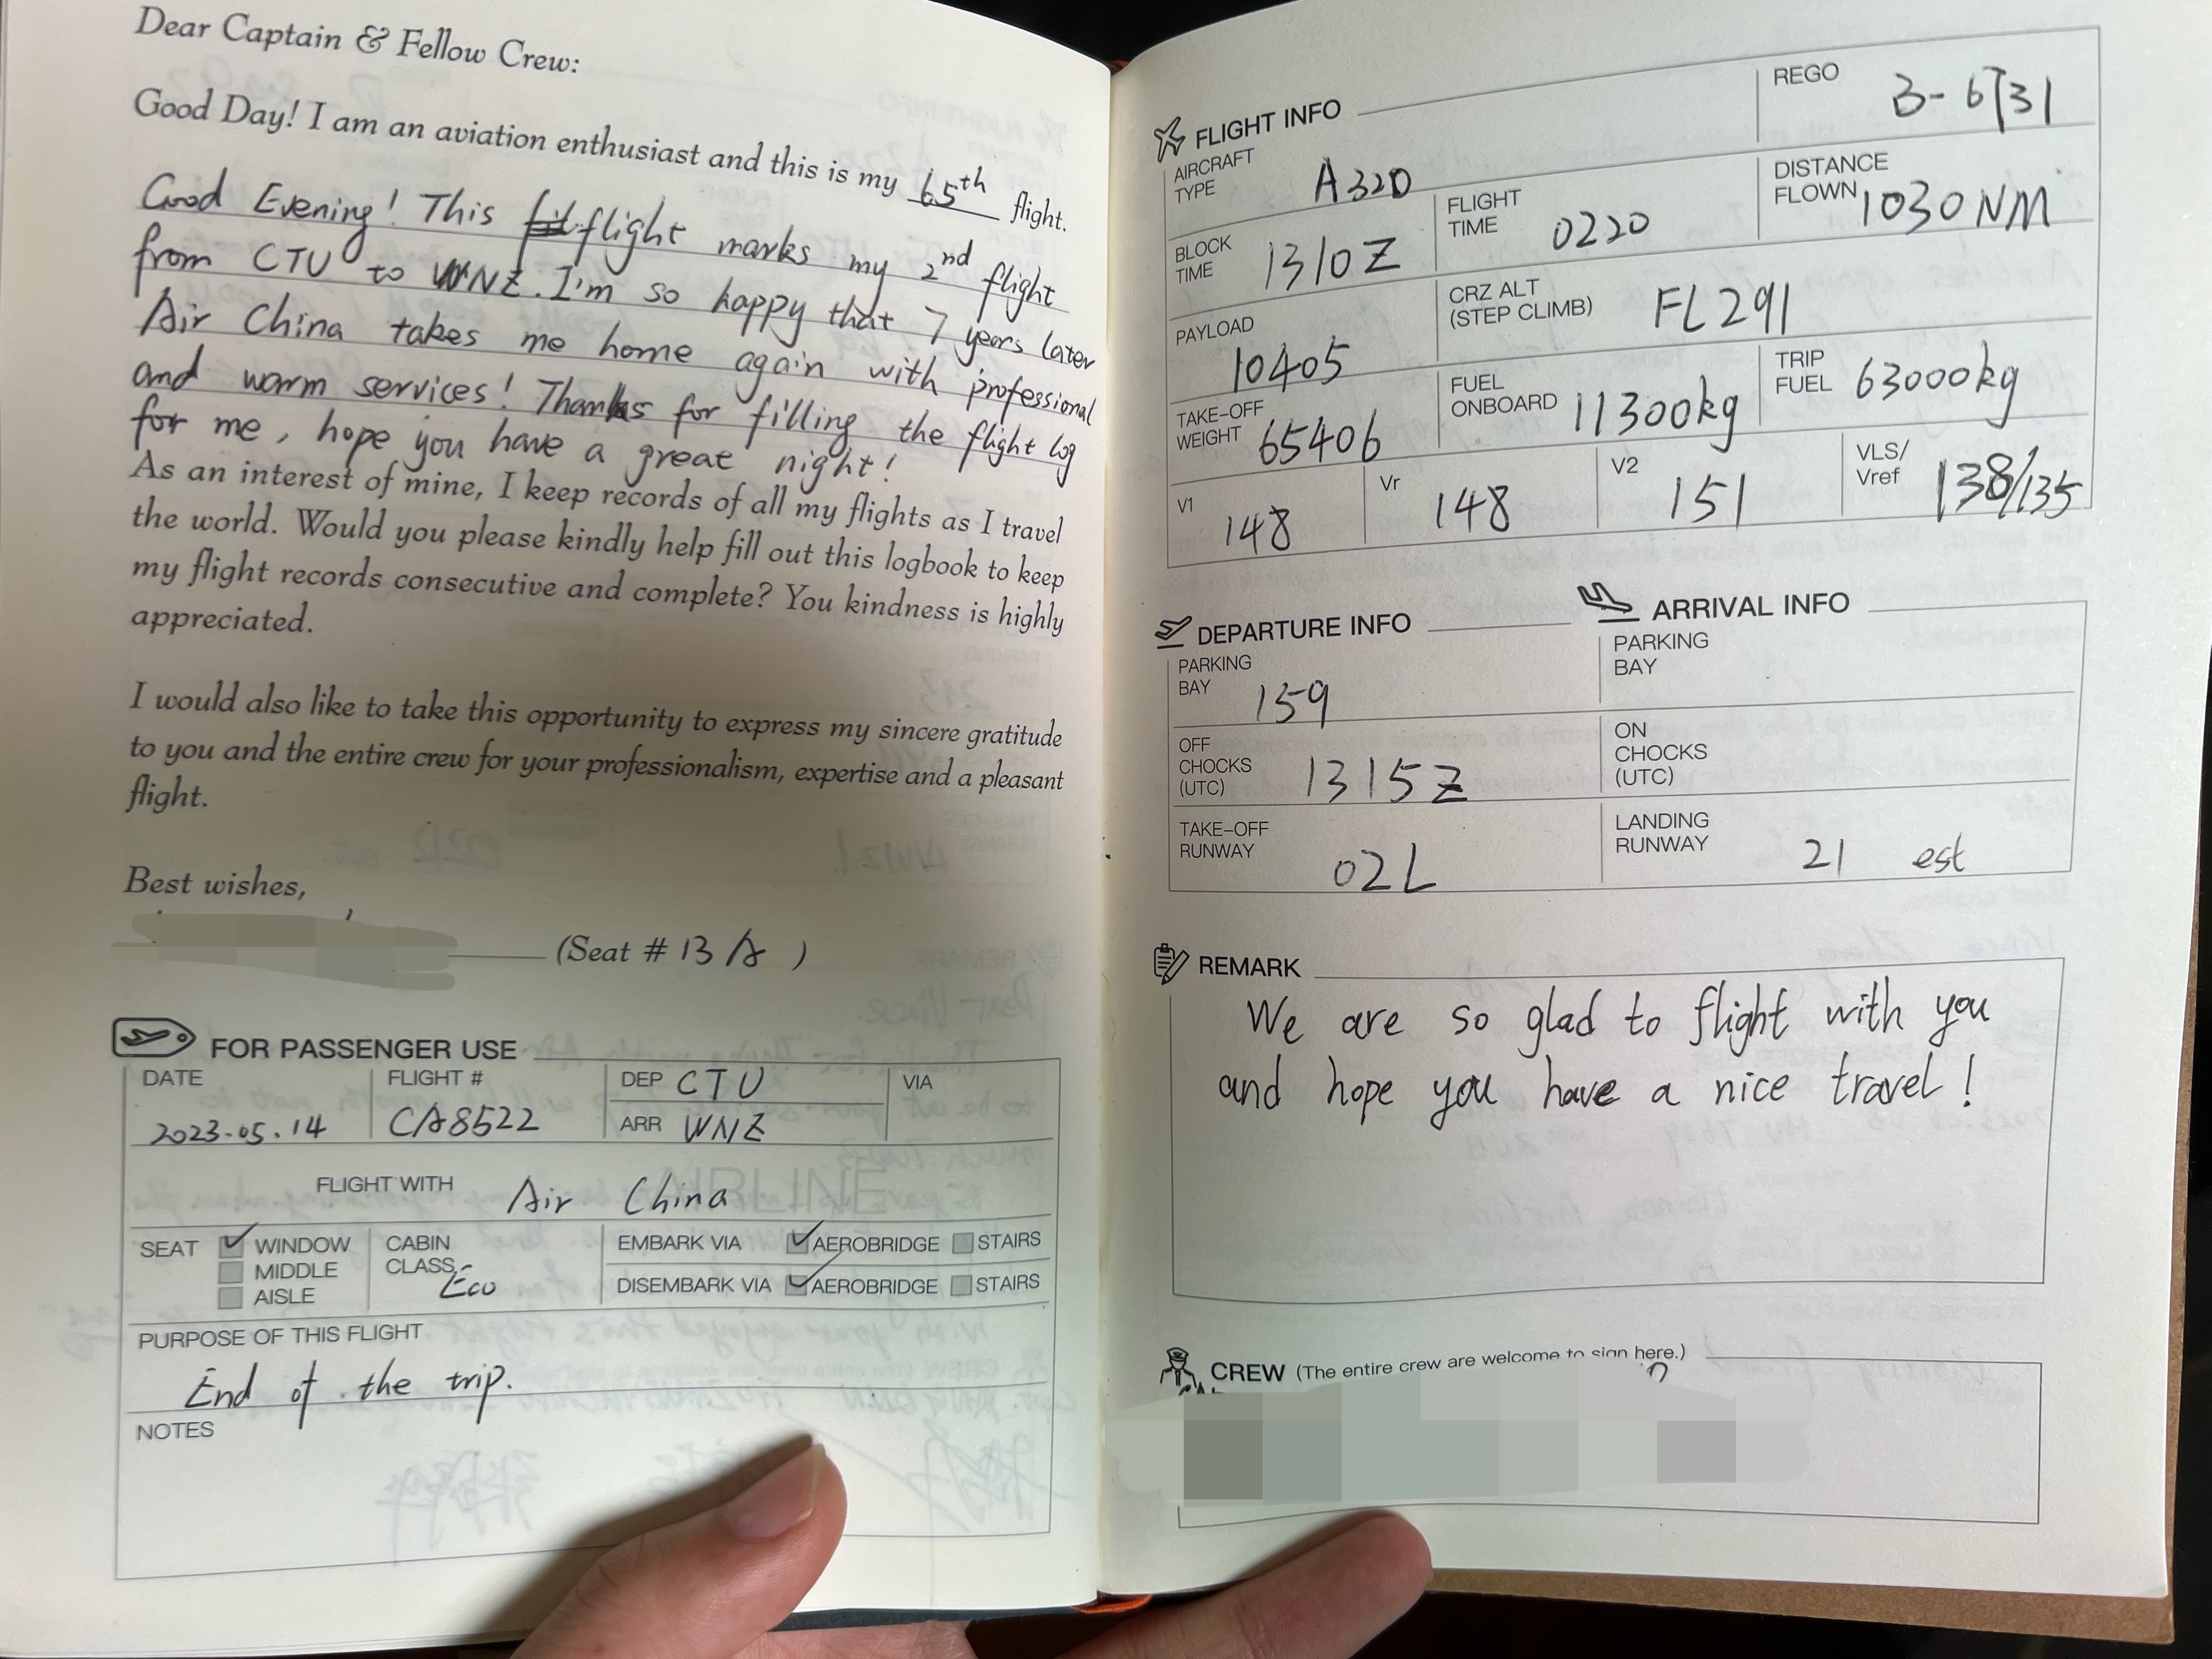 Dear Captain & Fellow Crew:
Good Day! I am an aviation enthusiast and this is my 65th flight.
Good Evening! This flight marks my 2nd flight
from CTU to WNZ. I'm so happy that 7 years later
Air China takes me home again with professional
and warm services! Thanks for filling the flight log
for me, hope you have a great night!
As an interest of mine, I keep records of all my flights as I travel
the world. Would you please kindly help fill out this logbook to keep
my flight records consecutive and complete? You kindness is highly
appreciated.
I would also like to take this opportunity to express my sincere gratitude
to you and the entire crew for your professionalism, expertise and a pleasant
flight.
Best wishes,
(Seat # 13A )
FOR PASSENGER USE
DATE 2023.05.14
FLIGHT # CA8522
DEP CTU
ARR WNZ
VIA
FLIGHT WITH Air China
SEAT
WINDOW
MIDDLE
AISLE
CABIN
CLASS Eco
EMBARK VIA AEROBRIDGE STAIRS
DISEMBARK VIA AEROBRIDGE STAIRS
PURPOSE OF THIS FLIGHT
End of the trip.
NOTES
FLIGHT INFO
REGO
AIRCRAFT
TYPE A320
DISTANCE
FLOWN 1030NM
BLOCK
TIME 1310Z
FLIGHT
TIME 0220
PAYLOAD
10405
CRZ ALT
(STEP CLIMB) FL291
TAKE-OFF
WEIGHT 65406
FUEL
ONBOARD 11300kg
TRIP
FUEL 63000kg
V1 148
Vr 148
V2 151
VLS/
Vref 138/135
DEPARTURE INFO
PARKING
BAY 159
OFF
CHOCKS
(UTC) 1315Z
TAKE-OFF
RUNWAY 02L
ARRIVAL INFO
PARKING
BAY
ON
CHOCKS
(UTC)
LANDING
RUNWAY 21 est
REMARK
We are so glad to flight with you
and hope you have a nice travel!
CREW (The entire crew are welcome to sign here.)